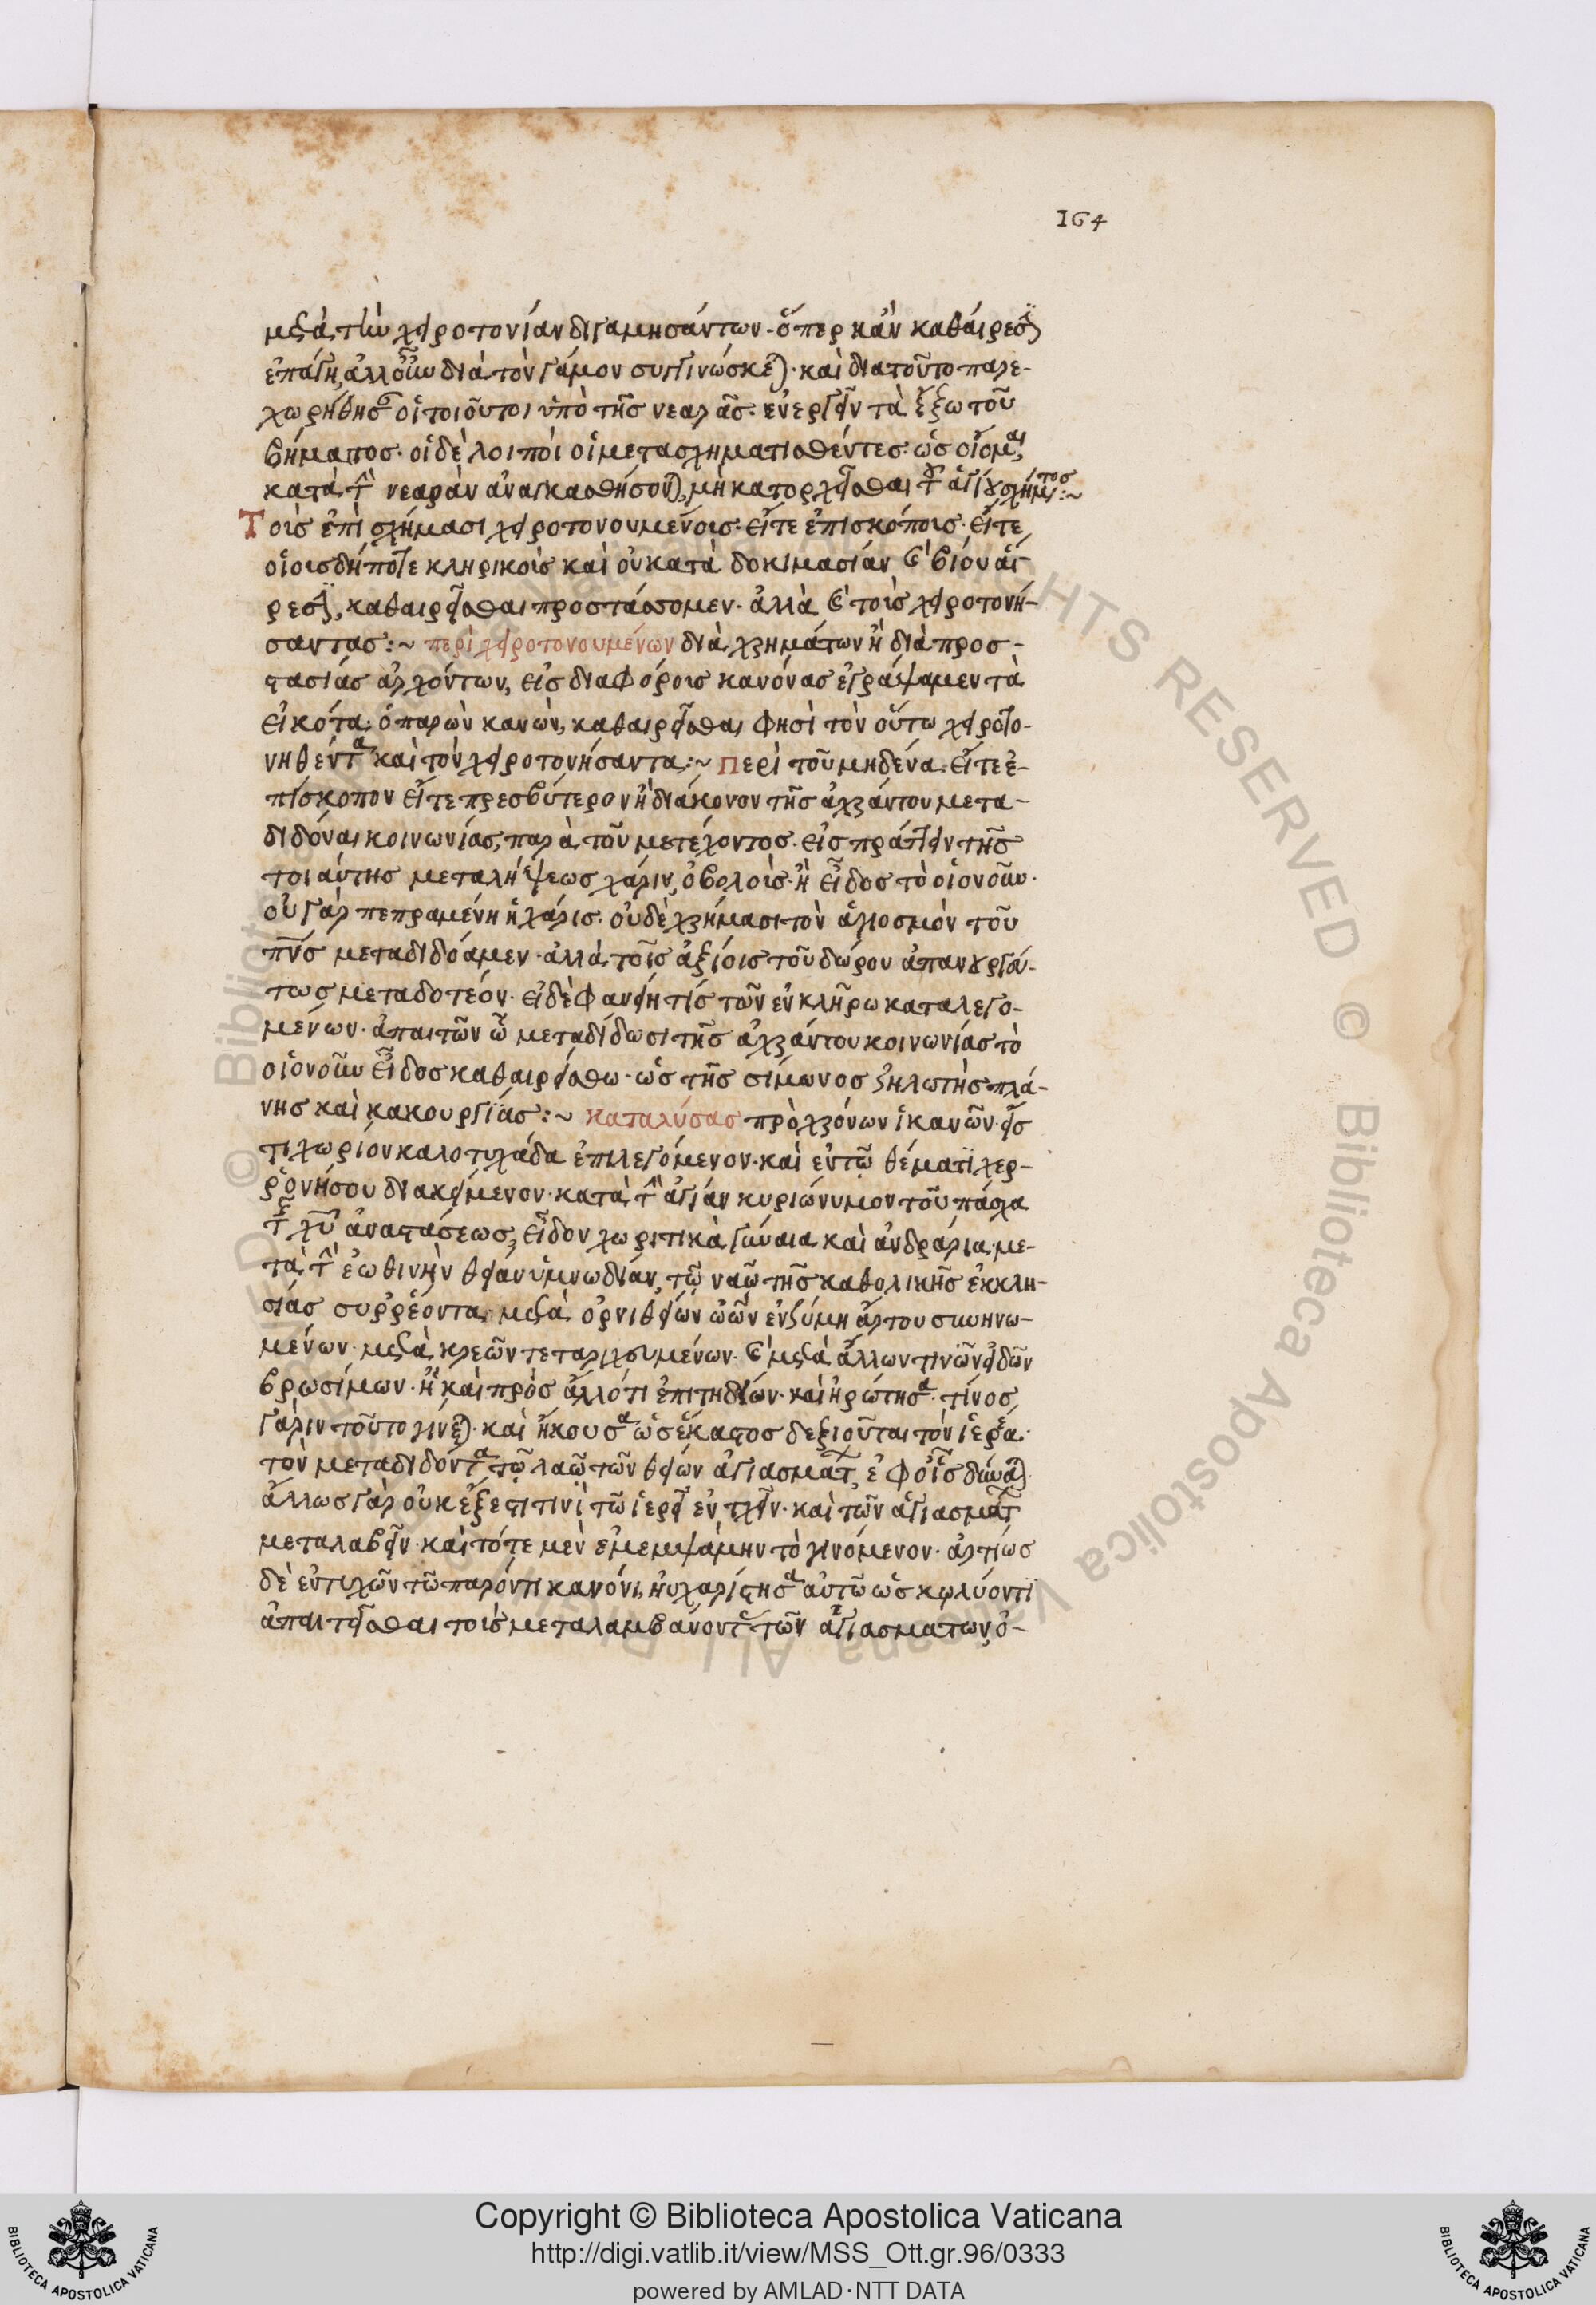 164
μετὰ τὴν χειροτονίαν διγαμησάντων. ὅπερ κἂν καθαίρεσιν
ἐπάγη, ἀλλ' οὖν διὰ τὸν γάμον συγγινώσκεται. καὶ διατοῦτο παρε-
χωρήθησαν οἱ τοιοῦτοι ὑπὸ τῆς νεαρᾶς. ἐνεργεῖν τὰ ἔξω τοῦ
βήματος. οἱ δὲ λοιποὶ οἱ μετασχηματισθέντες. ὡς οἶμαι,
κατὰ τὴν νεαρὰν ἀναγκασθήσονται, μὴ κατορχεῖσθαι τοῦ ἁγίου σχήματος:~
Τοῖς ἐπὶ σχήμασι χειροτονουμένοις. εἴτε ἐπισκόποις. εἴτε
οἱοισδήποτε κληρικοῖς καὶ οὐ κατὰ δοκιμασίαν καὶ βίου αἵ-
ρεσιν, καθαιρεῖσθαι προστάσσομεν. ἀλλὰ καὶ τοὺς χειροτονή-
σαντας:~ περὶ χειροτονουμένων διὰ χρημάτων ἢ διὰ προσ-
τασίας ἀρχόντων, εἰς διαφόρους κανόνας ἐγράψαμεν τὰ
εἰκότα. ὁ παρὼν κανών, καθαιρεῖσθαι φησὶ τὸν οὕτω χειροτο-
νηθέντα καὶ τὸν χειροτονήσαντα:~ Περὶ τοῦ μηδένα. εἴτε ἐ-
πίσκοπον εἴτε πρεσβύτερον ἢ διάκονον τῆς ἀχράντου μετα-
διδόναι κοινωνίας, παρὰ τοῦ μετέχοντος. εἰσπράττειν τῆς
τοιαύτης μεταλήψεως χάριν, ὀβολοὺς. ἢ εἶδος τὸ οἱονοῦν.
οὐ γὰρ πεπραμένη ἡ χάρις. οὐδὲ χρήμασι τὸν ἁγιασμὸν τοῦ
πνς μεταδιδόαμεν. ἀλλὰ τοῖς ἀξίοις τοῦ δώρου ἀπανουργεύ-
τως μεταδοτέον. εἰ δὲ φανείη τίς τῶν ἐν κλήρω καταλεγο-
μένων. ἀπαιτῶν ὧ μεταδίδωσι τῆς ἀχράντου κοινωνίας τὸ
οἱονοῦν εἶδος καθαιρείσθω. ὡς τῆς σίμωνος ζηλωτὴς πλά-
νης καὶ κακουργίας:~ καταλύσας πρὸ χρόνων ἱκανῶν. εἴς
τι χωρίον καλοτυχάδα ἐπιλεγόμενον. καὶ ἐν τῷ θέματι χερ-
ρονήσου διακείμενον. κατὰ τὴν ἁγίαν κυριώνυμον τοῦ πάσχα
τῆς χυ ἀναστάσεως, εἶδον χωριτικὰ γύναια καὶ ἀνδράρια. με-
τὰ τὴν ἑωθινὴν θείαν ὑμνωδίαν, τῷ ναῷ τῆς καθολικῆς ἐκκλη-
σίας συρρέοντα. μετὰ ὀρνιθείων ὠῶν ἐν ζύμη ἄρτου σκηνω-
μένων. μετὰ κρεῶν τεταριχευμένων. καὶ μετὰ ἄλλων τινῶν εἰδῶν
βρωσίμων. ἢ καὶ πρὸς ἄλλό τι ἐπιτηδείων. καὶ ἠρώτησα. τίνος
χάριν τοῦτο γίνεται. καὶ ἤκουσα ὡς ἕκαστος δεξιοῦται τὸν ἱερέα.
τὸν μεταδιδόντα τῷ λαῷ τῶν θείων ἁγιασμάτων, ἐφ' οἷς δύναται.
ἄλλως γὰρ οὐκ ἔξεστι τινὶ τῷ ἱερεῖ ἐντυχεῖν. καὶ τῶν ἁγιασμάτων
μεταλαβεῖν. καὶ τότε μὲν ἐμεμψάμην τὸ γινόμενον. ἀρτίως
δὲ ἐντυχῶν τῶ παρόντι κανόνι, ηὐχαρίστησα αὐτῶ ὡς κωλύοντι
ἀπαιτεῖσθαι τοὺς μεταλαμβάνοντας τῶν ἁγιασμάτων, ὀ-
Copyright © Biblioteca Apostolica Vaticana
http://digi.vatlib.it/view/MSS_Ott.gr.96/0333
powered by AMLAD·NTT DATA